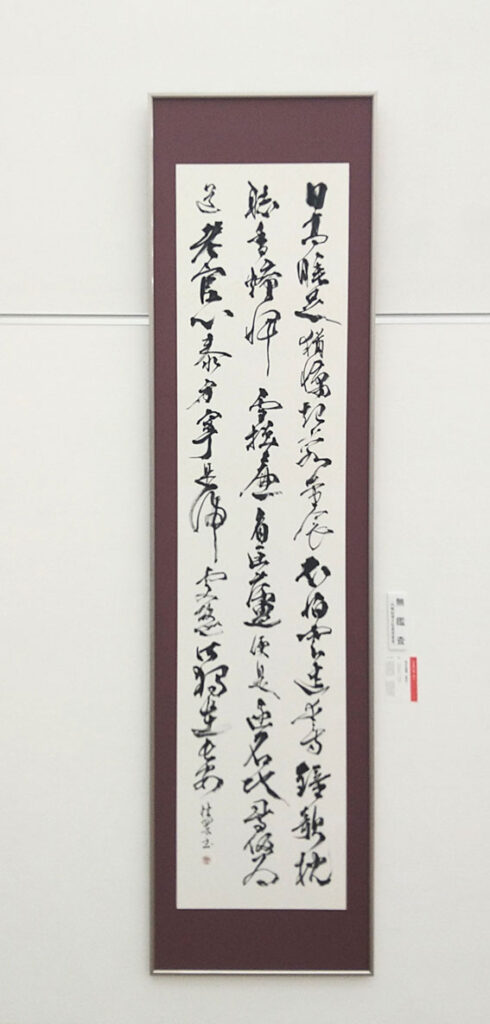 日高睡足猶慵起小閣重衾不怕寒遺愛寺鐘欹枕
聴香爐峰雪撥簾看匡廬便是逃名地司馬仍為
送老官心泰身寧是歸處故郷何獨在長安
無鑑査